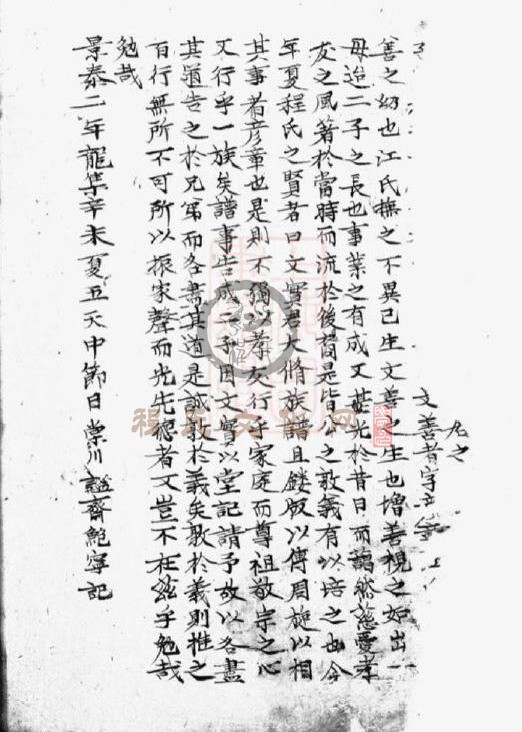 文善者字
善之幼也江氏撫之不異己生文善之生也增善視之如出一
母迨二子之長也事業之有成又甚光於昔日而藹然慈愛孝
友之風著於當時而流於後裔是皆公之敦義有以培之也今
年夏程氏之賢者曰文實君大脩族譜且鏤版以傳周旋以相
其事者彥章也是則不獨以孝友行乎家庭而尊祖敬宗之心
又行乎一族矣譜事告成二子因文實以堂記請予故以各盡
其道告之於兄弟而各盡其道是誠敦於義矣敦於義則推之
百行無所不可所以振家聲而光先德者又豈不在茲乎勉哉
勉哉
景泰二年龍集辛未夏五天中節日棠川謐齋鮑寧記